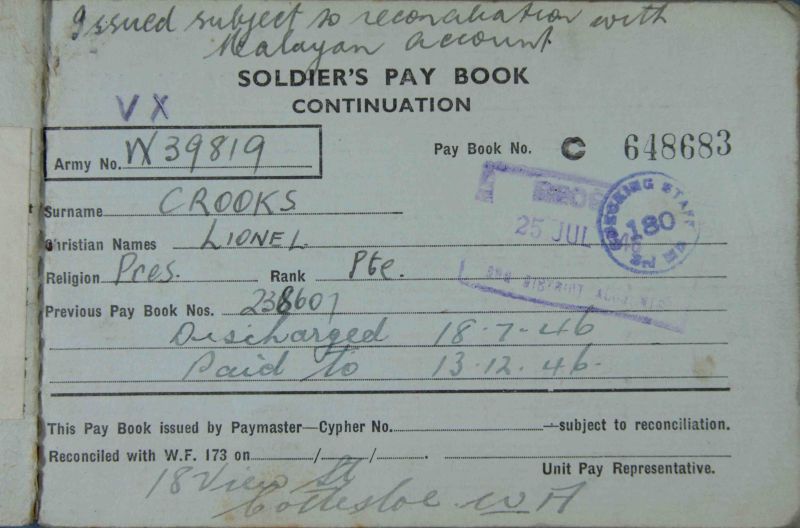 Issued subject to reconciliation with
Malayan account
SOLDIER'S PAY BOOK
CONTINUATION
VX
Army No. 39819
Pay Book No. C 648683
Surname CROOKS
Christian Names LIONEL
Religion Pres. Rank Pte.
Previous Pay Book Nos. 238607
Discharged 18.7.46
Paid to 13.12.46.
25 JUL 1946
CHECKING STAFF
180
DISTRICT ACCOUNTS
This Pay Book issued by Paymaster—Cypher No. —subject to reconciliation.
Reconciled with W.F. 173 on / / .
Unit Pay Representative.
18 View St
Cottesloe WA